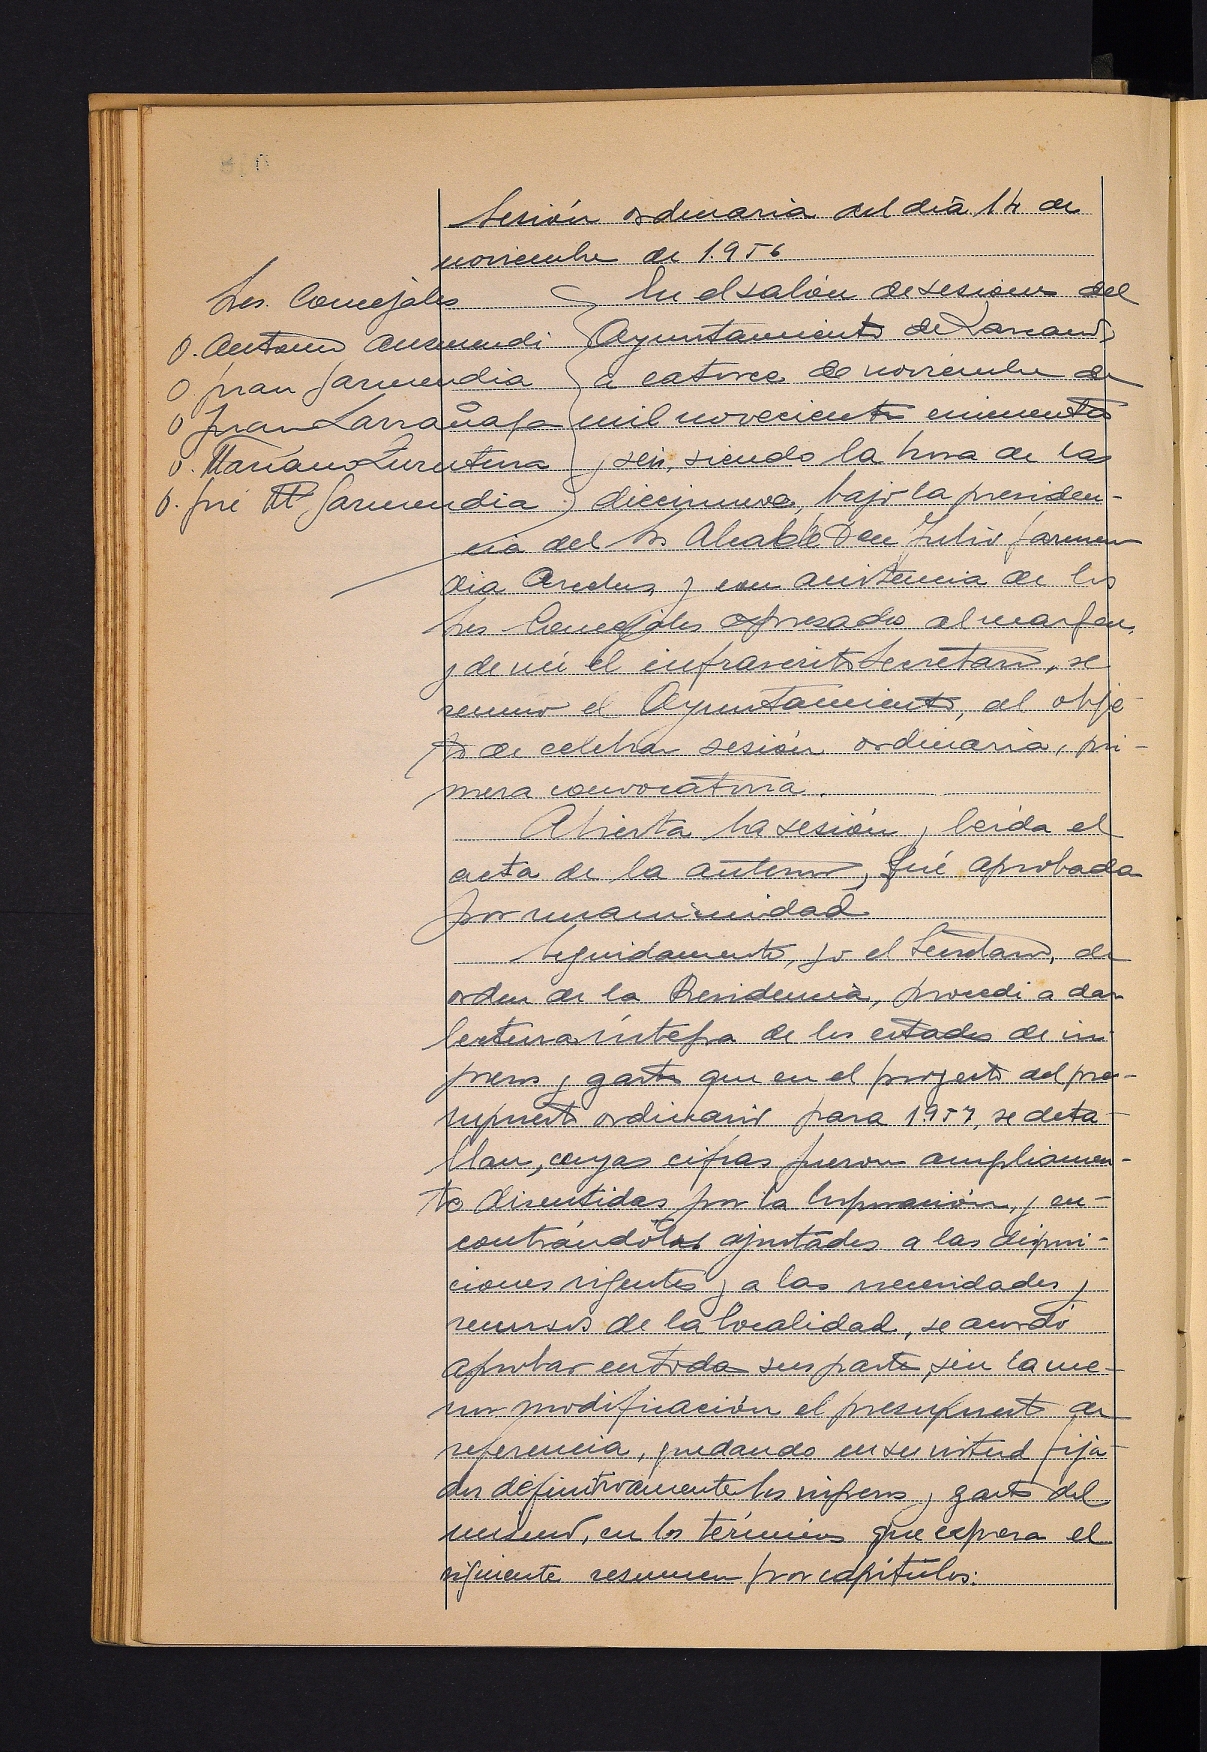 Sesión ordinaria del día 14 de
noviembre de 1.956
Sres. Concejales
D. Antonio Ausmendi
D. Juan Garmendia
D. Juan Larrañaga
D. Mariano Zurutuza
D. José Mª Garmendia
En el salón de sesiones del
Ayuntamiento de
a catorce de noviembre de
mil novecientos cincuenta
y seis, siendo la hora de las
diecinueve, bajo la presiden-
cia del Sr. Alcalde Don Julio Garmen
dia y con asistencia de los
Sres Concejales expresados al margen,
y de mí el infrascrito Secretario, se
reunió el Ayuntamiento, al obje-
to de celebrar sesión ordinaria, pri-
mera convocatoria.
Abierta la sesión y leída el
acta de la anterior, fué aprobada
por unanimidad
Seguidamente, yo el Secretario, de
orden de la Presidencia, procedí a dar
lectura íntegra de los estados de in
gresos y gastos que en el proyecto del pre-
supuesto ordinario para 1957, se deta-
llan, cuyas cifras fueron ampliamen-
te discutidas por la Corporación, y en-
contrándolas ajustadas a las disposi-
ciones vigentes y a las necesidades y
recursos de la localidad, se acordó
aprobar en todas sus partes, sin la me-
nor modificación el presupuesto de
referencia, quedando en su virtud fija-
dos definitivamente los ingresos y gastos del
mismo, en los términos que expresa el
siguiente resumen por capítulos: